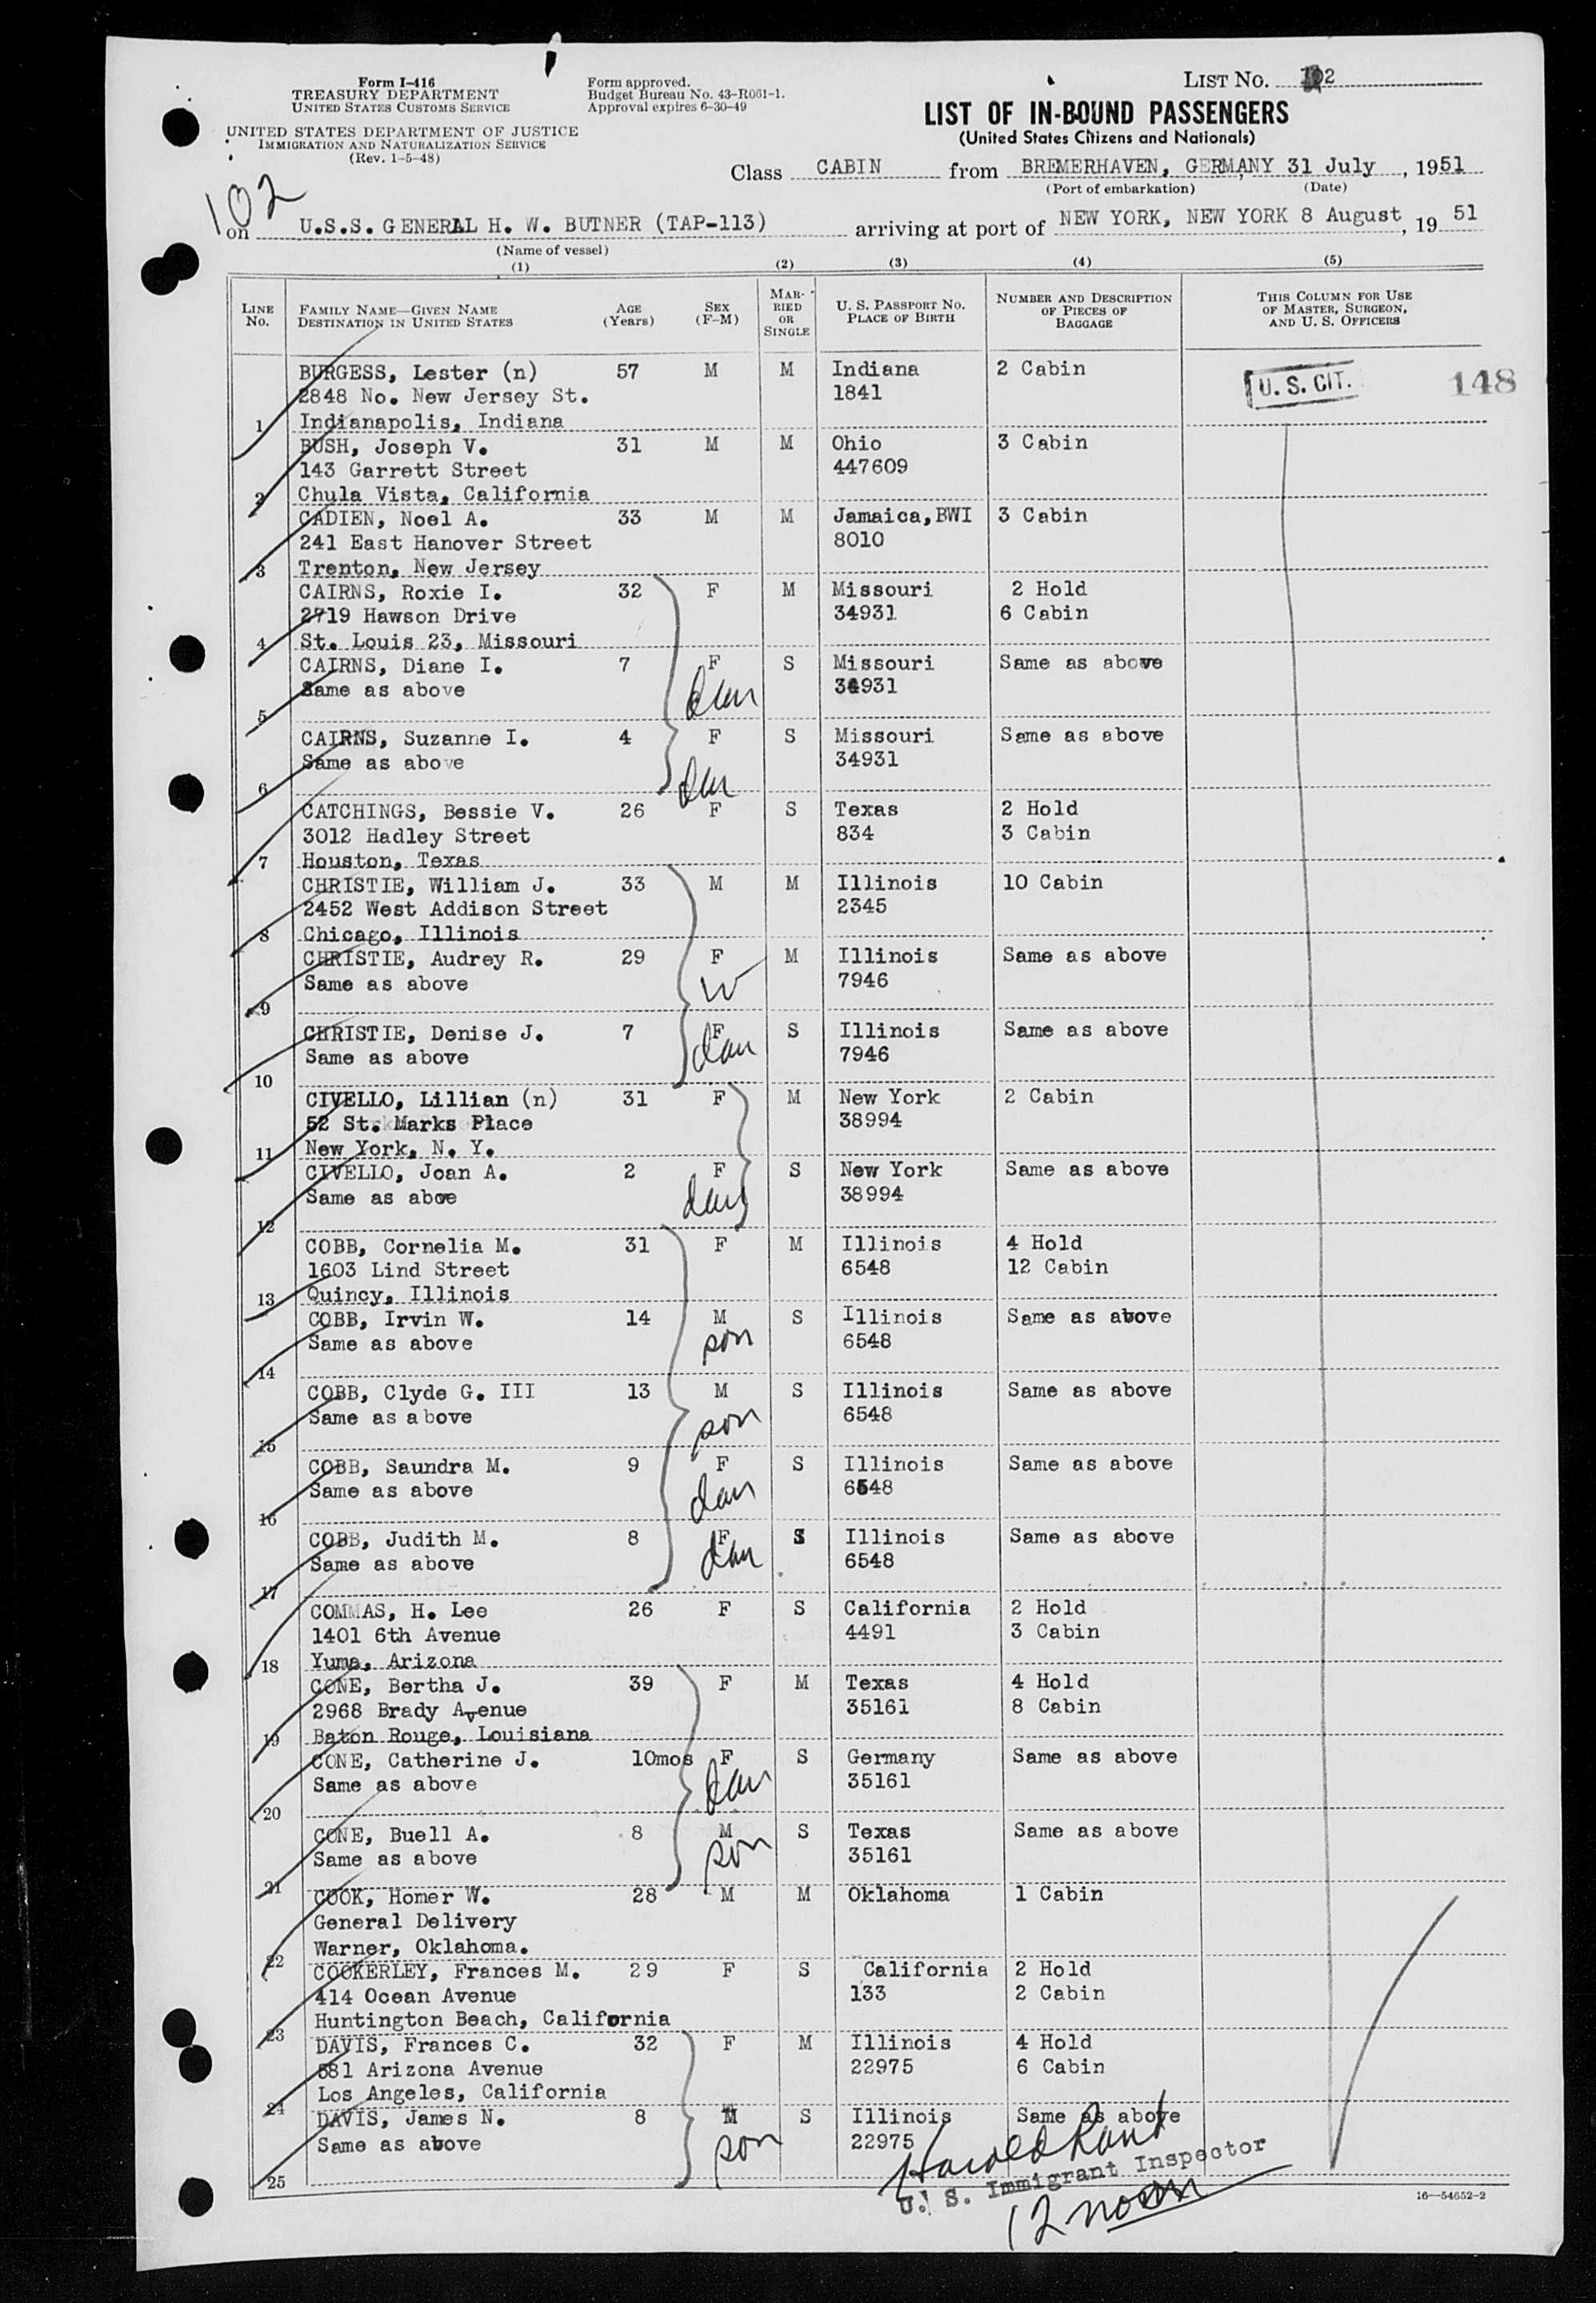 Form I-416
TREASURY DEPARTMENT
UNITED STATES CUSTOMS SERVICE
UNITED STATES DEPARTMENT OF JUSTICE
IMMIGRATION AND NATURALIZATION SERVICE
(Rev. 1-5-48)
Form approved.
Budget Bureau No. 43-R061-1.
Approval expires 6-30-49
LIST NO. 102
LIST OF IN-BOUND PASSENGERS
(United States Citizens and Nationals)
Class CABIN from BREMERHAVEN, GERMANY 31 July, 1951
(Port of embarkation) (Date)
102
on U.S.S. GENERAL H. W. BUTNER (TAP-113) arriving at port of NEW YORK, NEW YORK 8 August, 19 51
(Name of vessel)
(1) (2) (3) (4) (5)
LINE No. FAMILY NAME—GIVEN NAME DESTINATION IN UNITED STATES AGE (Years) SEX (F-M) MARRIED OR SINGLE U. S. PASSPORT NO. PLACE OF BIRTH NUMBER AND DESCRIPTION OF PIECES OF BAGGAGE THIS COLUMN FOR USE OF MASTER, SURGEON, AND U. S. OFFICERS
BURGESS, Lester (n) 57 M M Indiana 2 Cabin U. S. CIT. 148
2848 No. New Jersey St. 1841
1 Indianapolis, Indiana
BUSH, Joseph V. 31 M M Ohio 3 Cabin
143 Garrett Street 447609
2 Chula Vista, California
CADIEN, Noel A. 33 M M Jamaica, BWI 3 Cabin
241 East Hanover Street 8010
3 Trenton, New Jersey
CAIRNS, Roxie I. 32 F M Missouri 2 Hold
2719 Hawson Drive 34931 6 Cabin
4 St. Louis 23, Missouri
CAIRNS, Diane I. 7 F S Missouri Same as above
Same as above dau 34931
5
CAIRNS, Suzanne I. 4 F S Missouri Same as above
Same as above dau 34931
6
CATCHINGS, Bessie V. 26 F S Texas 2 Hold
3012 Hadley Street 834 3 Cabin
7 Houston, Texas
CHRISTIE, William J. 33 M M Illinois 10 Cabin
2452 West Addison Street 2345
8 Chicago, Illinois
CHRISTIE, Audrey R. 29 F M Illinois Same as above
Same as above W 7946
9
CHRISTIE, Denise J. 7 F S Illinois Same as above
Same as above dau 7946
10
CIVELLO, Lillian (n) 31 F M New York 2 Cabin
52 St. Marks Place 38994
11 New York, N. Y.
CIVELLO, Joan A. 2 F S New York Same as above
Same as above dau 38994
12
COBB, Cornelia M. 31 F M Illinois 4 Hold
1603 Lind Street 6548 12 Cabin
13 Quincy, Illinois
COBB, Irvin W. 14 M S Illinois Same as above
Same as above son 6548
14
COBB, Clyde G. III 13 M S Illinois Same as above
Same as above son 6548
15
COBB, Saundra M. 9 F S Illinois Same as above
Same as above dau 6548
16
COBB, Judith M. 8 F S Illinois Same as above
Same as above dau 6548
17
COMMAS, H. Lee 26 F S California 2 Hold
1401 6th Avenue 4491 3 Cabin
18 Yuma, Arizona
CONE, Bertha J. 39 F M Texas 4 Hold
2968 Brady Avenue 35161 8 Cabin
19 Baton Rouge, Louisiana
CONE, Catherine J. 10mos F S Germany Same as above
Same as above dau 35161
20
CONE, Buell A. 8 M S Texas Same as above
Same as above son 35161
21
COOK, Homer W. 28 M M Oklahoma 1 Cabin
General Delivery
22 Warner, Oklahoma.
COOKERLEY, Frances M. 29 F S California 2 Hold
414 Ocean Avenue 133 2 Cabin
23 Huntington Beach, California
DAVIS, Frances C. 32 F M Illinois 4 Hold
881 Arizona Avenue 22975 6 Cabin
24 Los Angeles, California
DAVIS, James N. 8 M S Illinois Same as above
Same as above son 22975
25
Harold
U. S. Immigrant Inspector
12 noon
16—54652-2